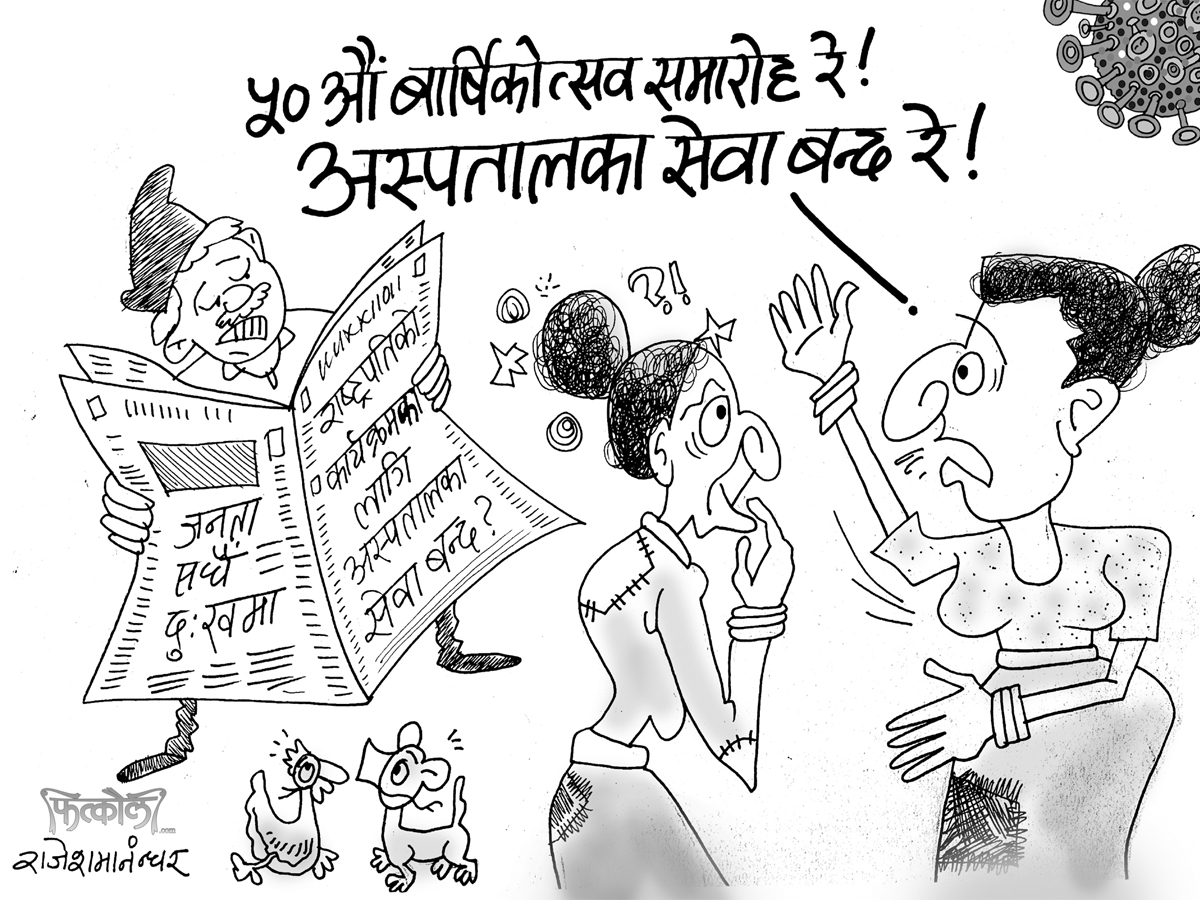 ५० औं बार्षिकोत्सव समारोह रे!
अस्पतालका सेवा बन्द रे!
?!
राष्ट्रपतिको
कार्यक्रमका
लागि
अस्पतालका
सेवा बन्द?
जनता
सधैं
दु:खमा
फत्कौला
.com
राजेशमानन्धर